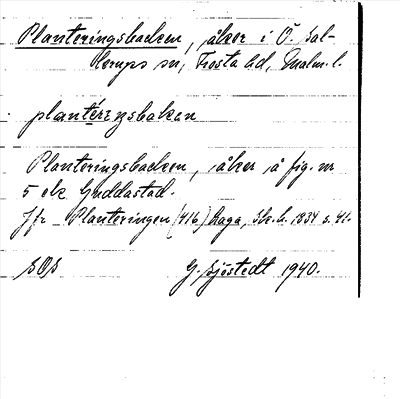 Planteringsbacken, åker i Ö. Sal-
lerups sn, Frosta hd, Malm. l.
plantéreŋsbakan
Planteringsbacken, åker å fig. nr
5 ek Guddastad.
Jfr Planteringen (416) haga, Sk. b. 1834 s. 41.
SOS G. Sjöstedt 1940.